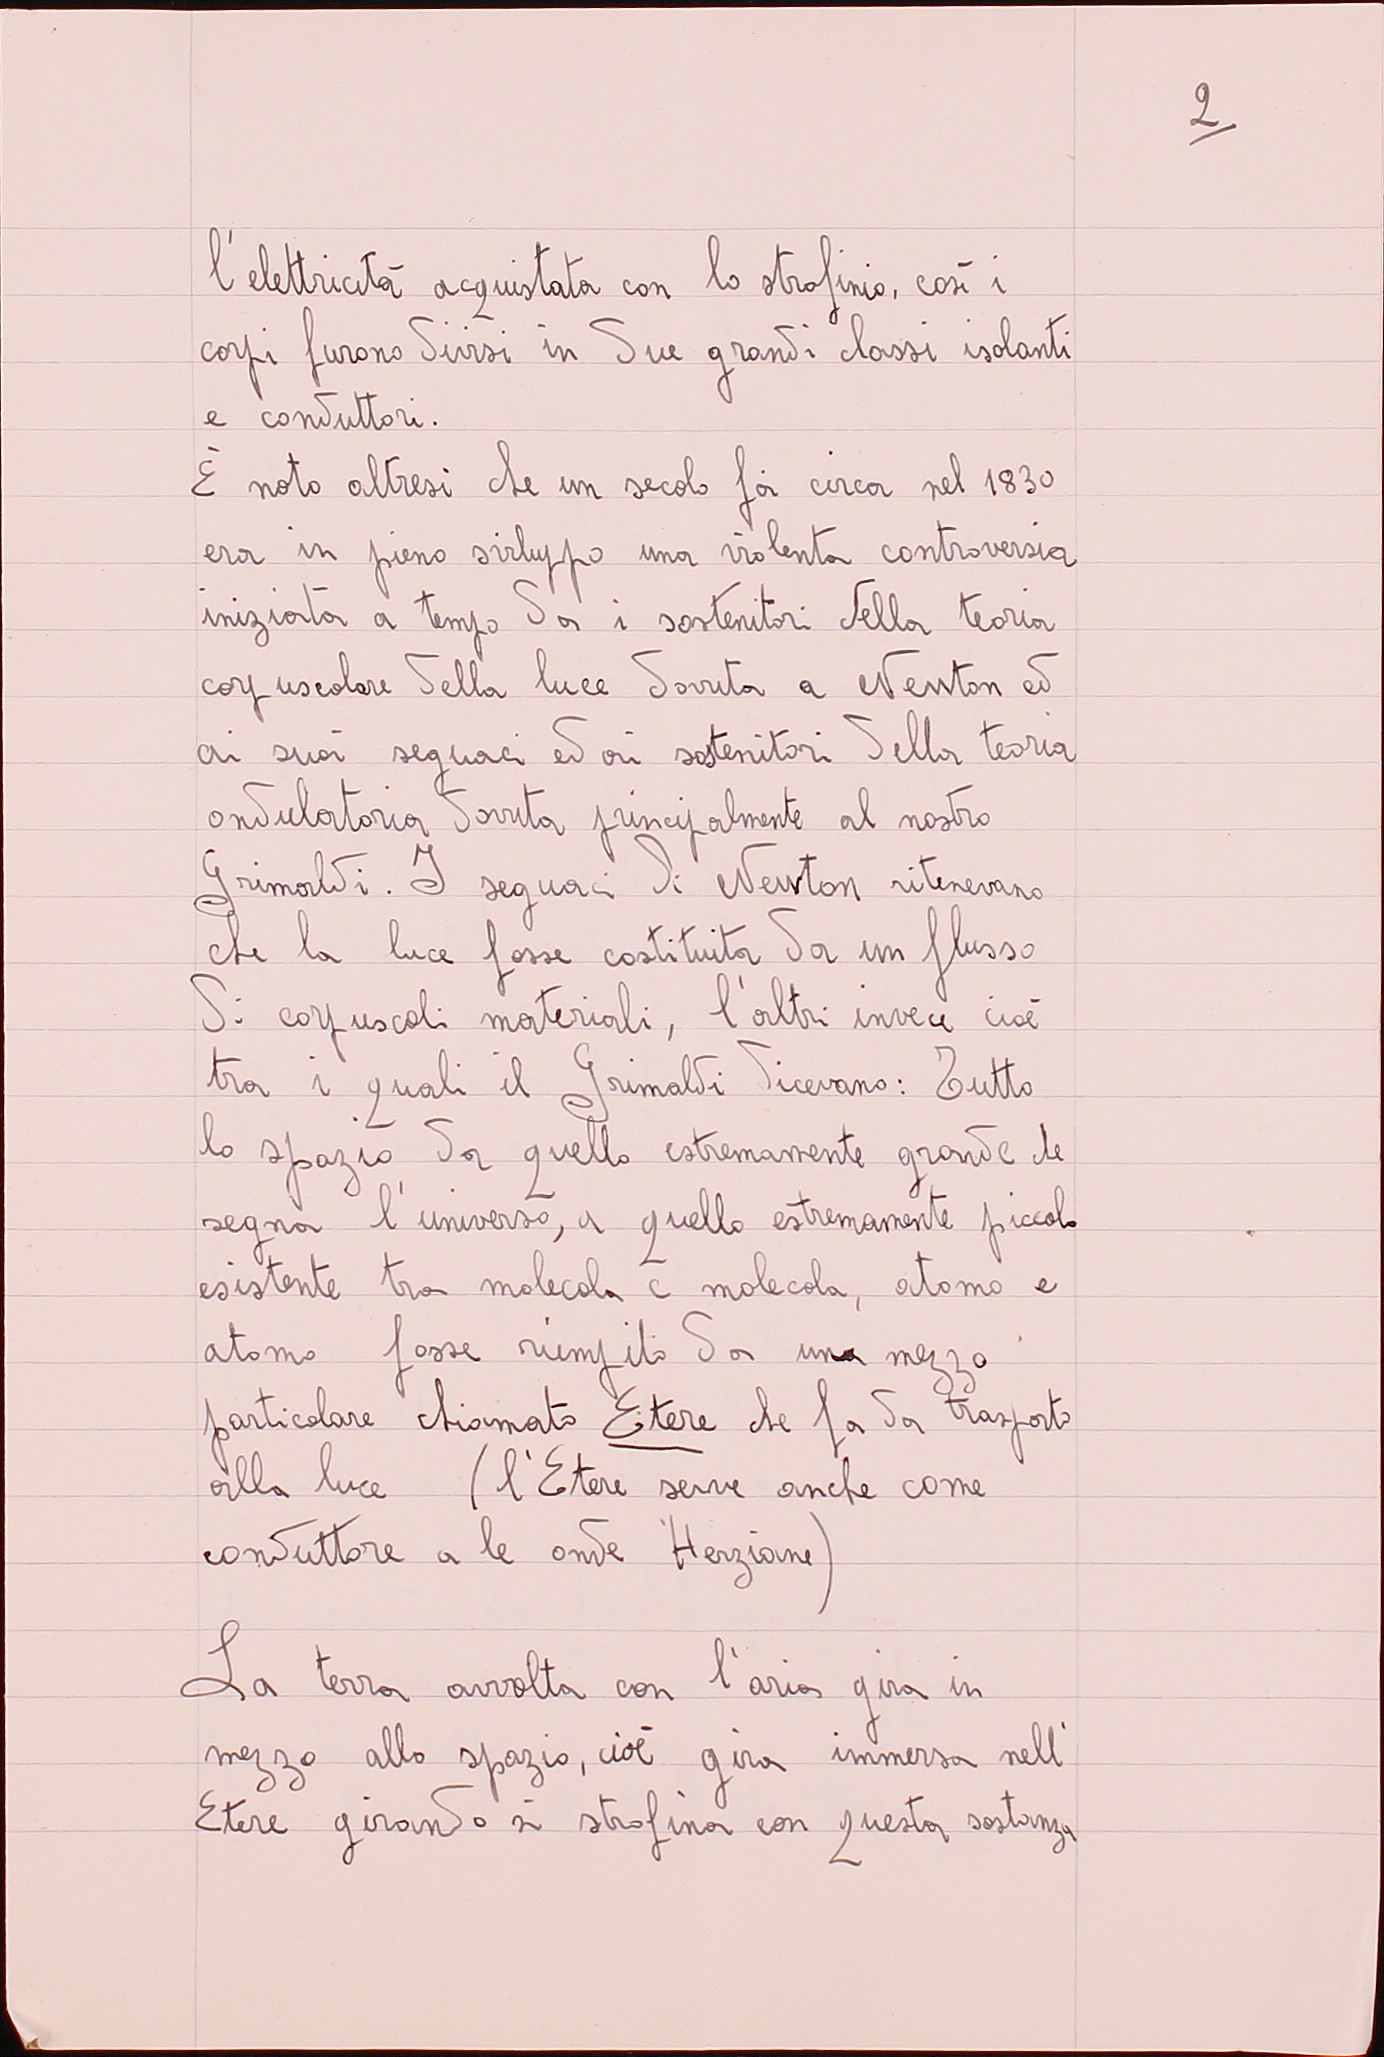 2
l'elettricità acquistata con lo strofinio, così i
corpi furono divisi in due grandi classi isolanti
e conduttori.
È noto altresì che un secolo fà circa nel 1830
era in pieno sviluppo una violenta controversia
iniziata a tempo da i sostenitori della teoria
corpuscolare della luce dovuta a Newton ed
ai suoi seguaci ed ai sostenitori della teoria
ondulatoria dovuta principalmente al nostro
Grimaldi. I seguaci di Newton ritenevano
che la luce fosse costituita da un flusso
di corpuscoli materiali, l'altri invece cioè
tra i quali il Grimaldi dicevano: Tutto
lo spazio da quello estremamente grande che
segna l'universo, a quello estremamente piccolo
esistente tra molecola e molecola, atomo e
atomo fosse riempito da una mezzo
particolare chiamato Etere che fa da trasporto
alla luce (l'Etere serve anche come
conduttore a le onde Herziane)
La terra avvolta con l'aria gira in
mezzo allo spazio, cioè gira immersa nell'
Etere girando si strofina con questa sostanza